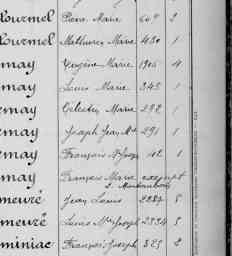 Lourmel Pierre Marie 607 2
Lourmel Mathurin Marie 480 1
may Eugène Marie 1906 4
may Louis Marie 345 1
emay Célestin Marie 292 1
emay Joseph Jean Mie 291 1
emay François Mie Joseph 42 1
may François Marie exempt
meuré Jean Louis 2887 5
meuré Louis Mie Joseph 2334 5
miniac François Joseph 325 2